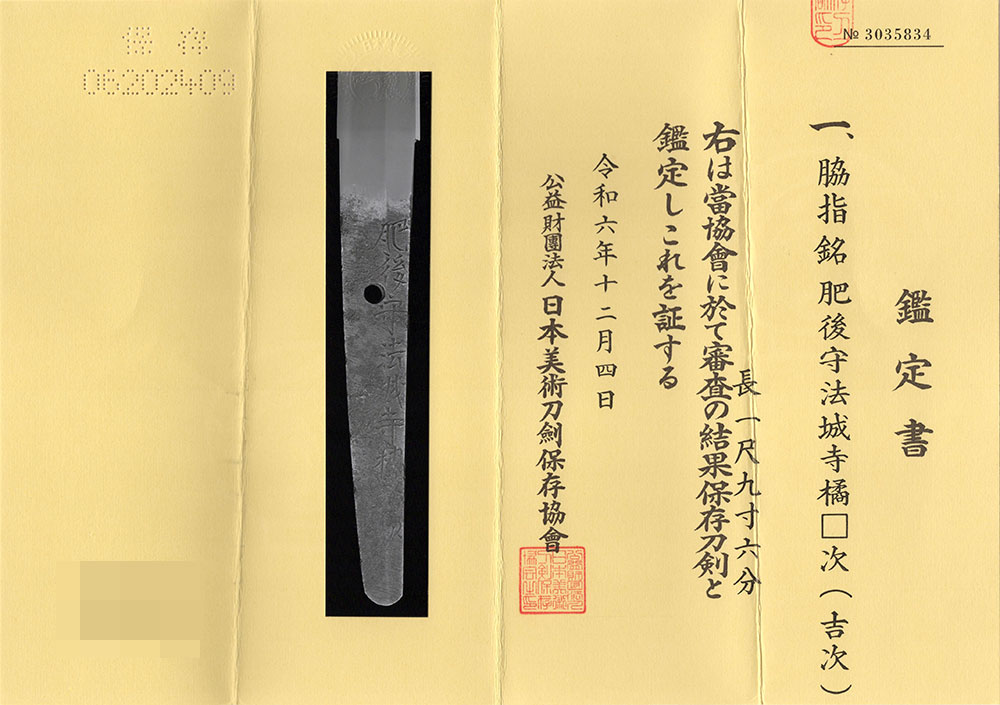 № 3035834
鑑定書
一、脇指銘肥後守法城寺橘□次(吉次)
長一尺九寸六分
右は當協會に於て審査の結果保存刀剣と
鑑定しこれを証する
令和六年十二月四日
公益財團法人日本美術刀劍保存協會
肥後守法城寺橘
保存
06202409